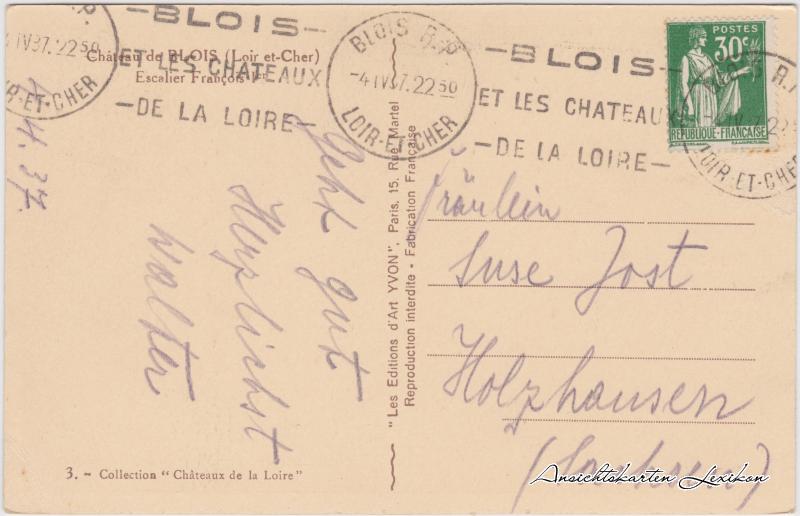 BLOIS R.P.
-4 IV 37. 22 50
LOIR-ET-CHER
—BLOIS—
ET LES CHATEAUX
—DE LA LOIRE—
BLOIS R.P.
-4 IV 37. 22 50
LOIR-ET-CHER
—BLOIS—
ET LES CHATEAUX
—DE LA LOIRE—
LOIR-ET-CHER
POSTES
30c
RÉPUBLIQUE-FRANÇAISE
Château de BLOIS (Loir et-Cher)
Escalier François Ier
4.4.37.
Geht gut
Herzlichst
Walter
"Les Editions d'Art YVON", Paris, 15, Rue Martel
Reproduction interdite - Fabrication Française
Fräulein
Suse Jost
Holzhausen
(Sachsen)
3. - Collection "Châteaux de la Loire"
Ansichtskarten Lexikon